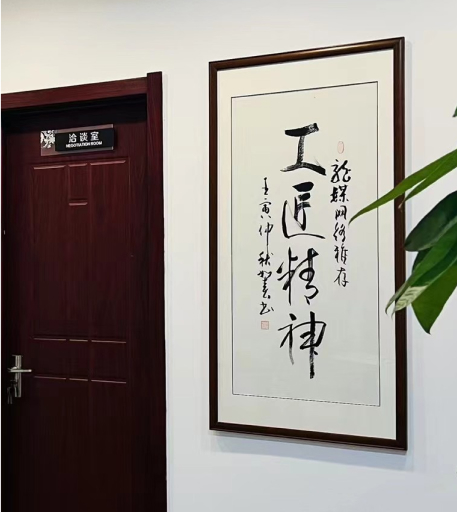 洽谈室
NEGOTIATION ROOM
龙媒网络雅存
工匠精神
壬寅仲秋
书